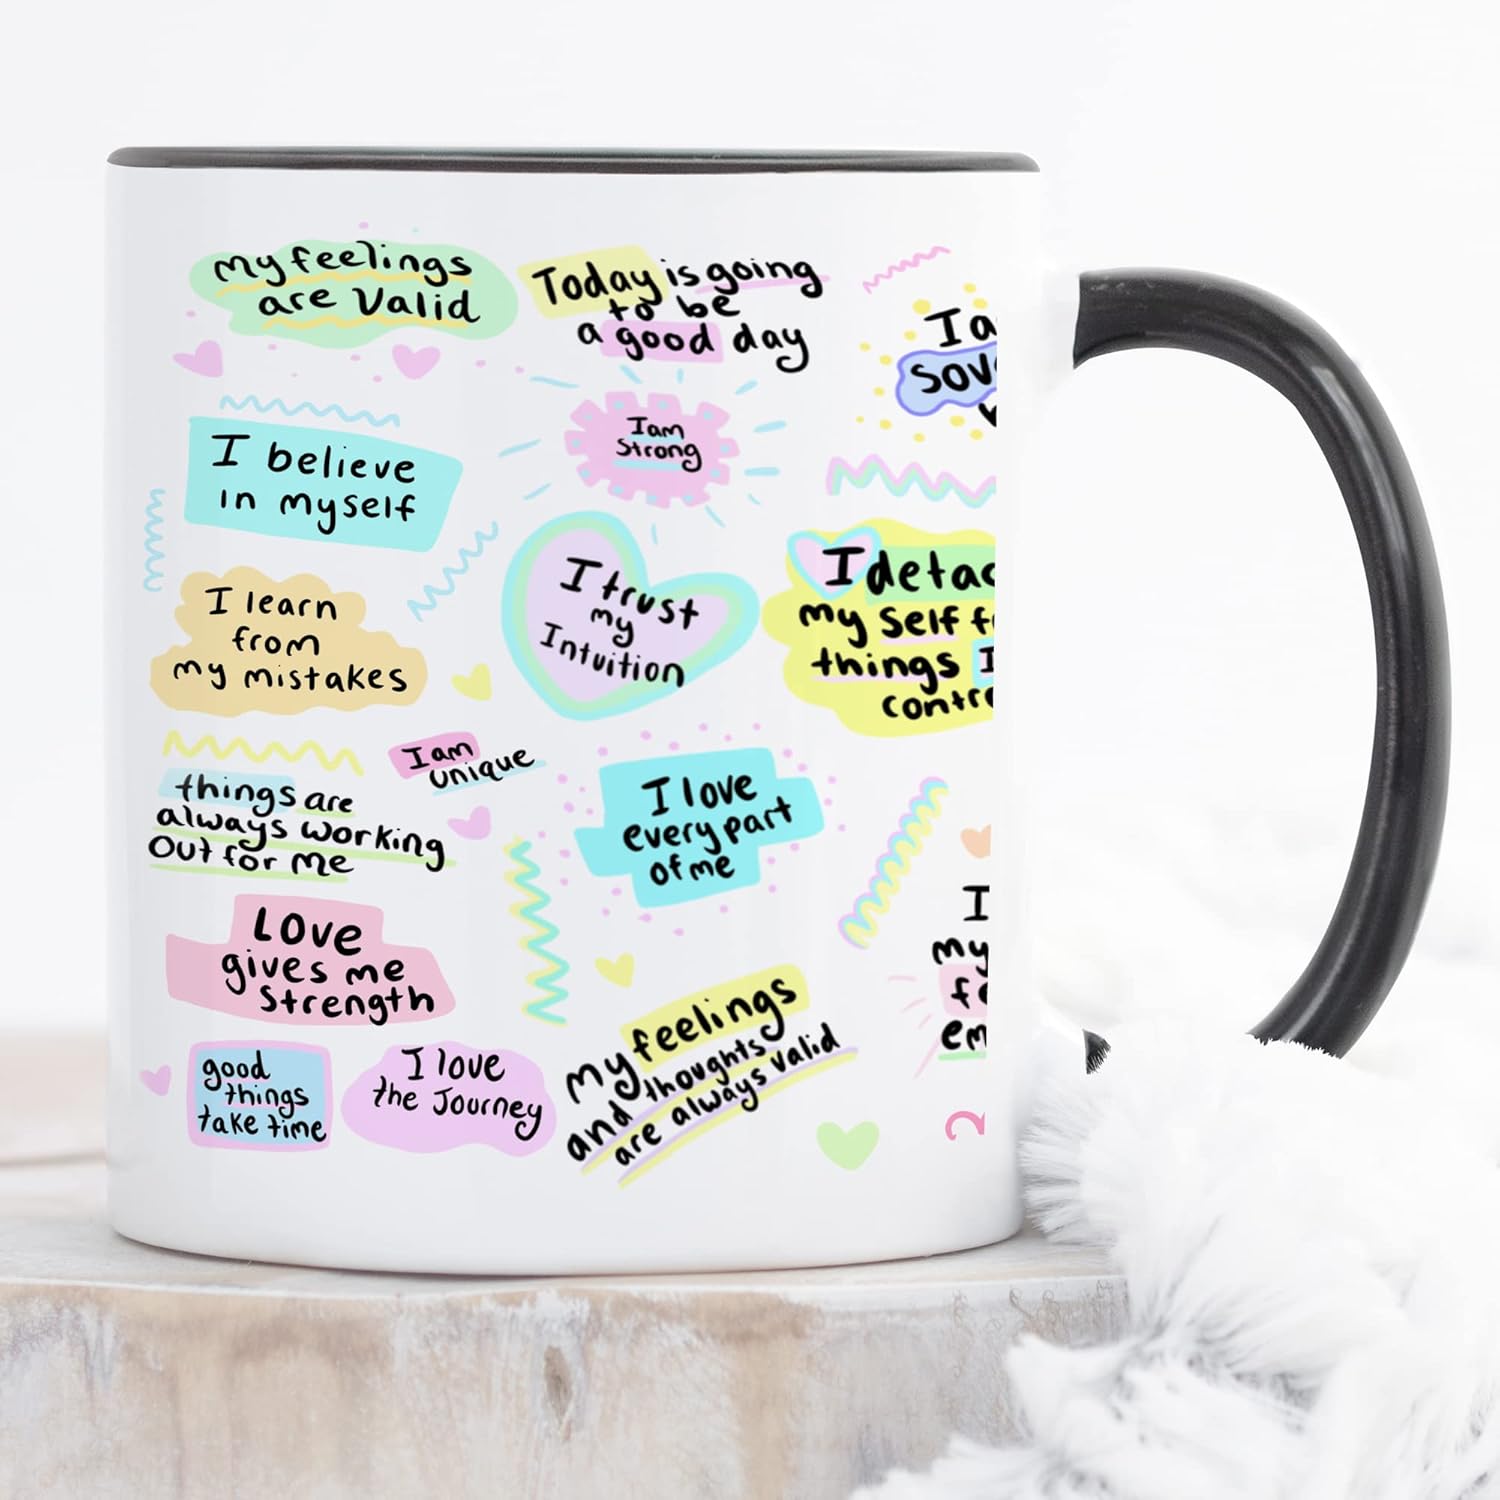 My feelings
are Valid
Today is going
to be
a good day
I believe
in myself
I am
Strong
I learn
from
my mistakes
I trust
my
Intuition
I
my self
things I
I am
unique
things are
always working
Out for me
I love
every part
of me
Love
gives me
strength
good
things
take time
I love
the Journey
My feelings
and thoughts
are always valid
I